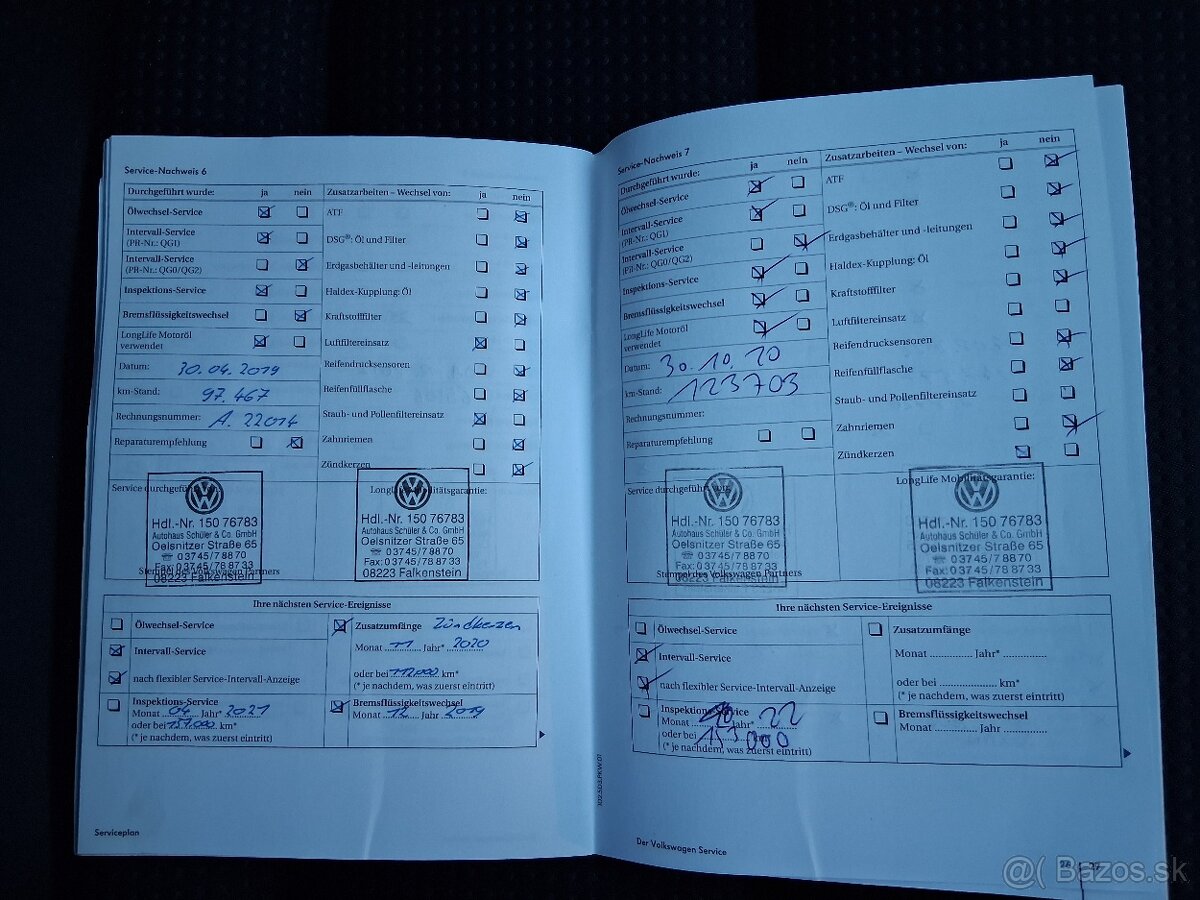 Service-Nachweis 6
Durchgeführt wurde: ja nein Zusatzarbeiten – Wechsel von: ja nein
Ölwechsel-Service ATF
Intervall-Service
(PR-Nr.: QG1) DSG®: Öl und Filter
Intervall-Service
(PR-Nr.: QG0/QG2) Erdgasbehälter und -leitungen
Inspektions-Service Haldex-Kupplung: Öl
Bremsflüssigkeitswechsel Kraftstofffilter
LongLife Motoröl
verwendet Luftfiltereinsatz
Datum: 30.04.2019 Reifendrucksensoren
km-Stand: 97.467 Reifenfüllflasche
Rechnungsnummer: A. 22014 Staub- und Pollenfiltereinsatz
Reparaturempfehlung Zahnriemen
Zündkerzen
Service durchgeführt LongLife Mobilitätsgarantie:
Hdl.-Nr. 150 76783 Hdl.-Nr. 150 76783
Autohaus Schüler & Co. GmbH Autohaus Schüler & Co. GmbH
Oelsnitzer Straße 65 Oelsnitzer Straße 65
☎ 03745/78870 ☎ 03745/78870
Fax: 03745/788733 Fax: 03745/788733
08223 Falkenstein 08223 Falkenstein
Stempel des Volkswagen Partners
Ihre nächsten Service-Ereignisse
Ölwechsel-Service Zusatzumfänge Zündkerzen
Intervall-Service Monat 11 Jahr* 2020
nach flexibler Service-Intervall-Anzeige oder bei 112.000 km*
(* je nachdem, was zuerst eintritt)
Inspektions-Service Bremsflüssigkeitswechsel
Monat 04 Jahr* 2021 Monat 12 Jahr 2019
oder bei 151.000 km*
(* je nachdem, was zuerst eintritt)
Serviceplan
102.5D3.PKW.01
Service-Nachweis 7
Durchgeführt wurde: ja nein Zusatzarbeiten – Wechsel von: ja nein
Ölwechsel-Service ATF
Intervall-Service
(PR-Nr.: QG1) DSG®: Öl und Filter
Intervall-Service
(PR-Nr.: QG0/QG2) Erdgasbehälter und -leitungen
Inspektions-Service Haldex-Kupplung: Öl
Bremsflüssigkeitswechsel Kraftstofffilter
LongLife Motoröl
verwendet Luftfiltereinsatz
Datum: 30.10.20 Reifendrucksensoren
km-Stand: 123703 Reifenfüllflasche
Rechnungsnummer: Staub- und Pollenfiltereinsatz
Reparaturempfehlung Zahnriemen
Zündkerzen
Service durchgeführt von: LongLife Mobilitätsgarantie:
Hdl.-Nr. 150 76783 Hdl.-Nr. 150 76783
Autohaus Schüler & Co. GmbH Autohaus Schüler & Co. GmbH
Oelsnitzer Straße 65 Oelsnitzer Straße 65
☎ 03745/78870 ☎ 03745/78870
Fax: 03745/788733 Fax: 03745/788733
08223 Falkenstein 08223 Falkenstein
Stempel des Volkswagen Partners
Ihre nächsten Service-Ereignisse
Ölwechsel-Service Zusatzumfänge
Intervall-Service Monat Jahr*
nach flexibler Service-Intervall-Anzeige oder bei km*
(* je nachdem, was zuerst eintritt)
Inspektions-Service Bremsflüssigkeitswechsel
Monat Jahr* 22 Monat Jahr
oder bei 153 000 km*
(* je nachdem, was zuerst eintritt)
Der Volkswagen Service
@( Bazos.sk